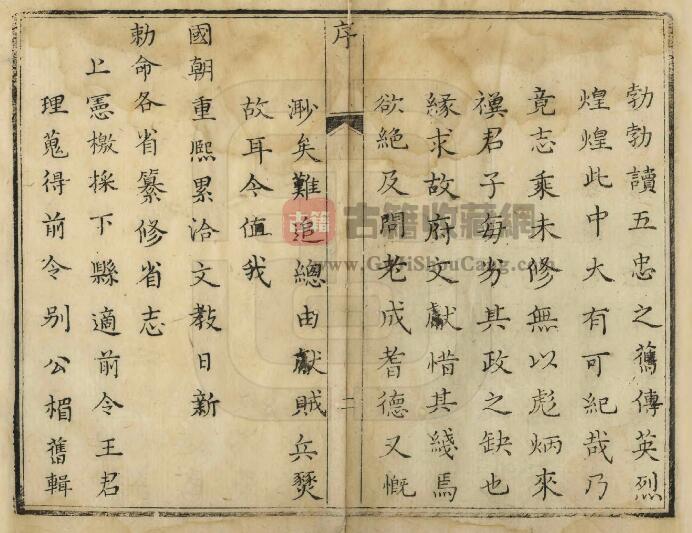 勃勃讀五忠之舊傳英烈
煌煌此中大有可紀哉乃
竟志乘未修無以彪炳來
禩君子每其政之缺也
緣求故府文獻惜其綫焉
欲絕及問老成耆德又慨
序
二
渺矣難追總由獻賊兵燹
故耳今值我
國朝重熙累洽文教日新
勅命各省纂修省志
上憲檄採下縣適前令王君
理蒐得前令別公楣舊輯
古籍
古籍收藏網
www.GuJiShouCang.com